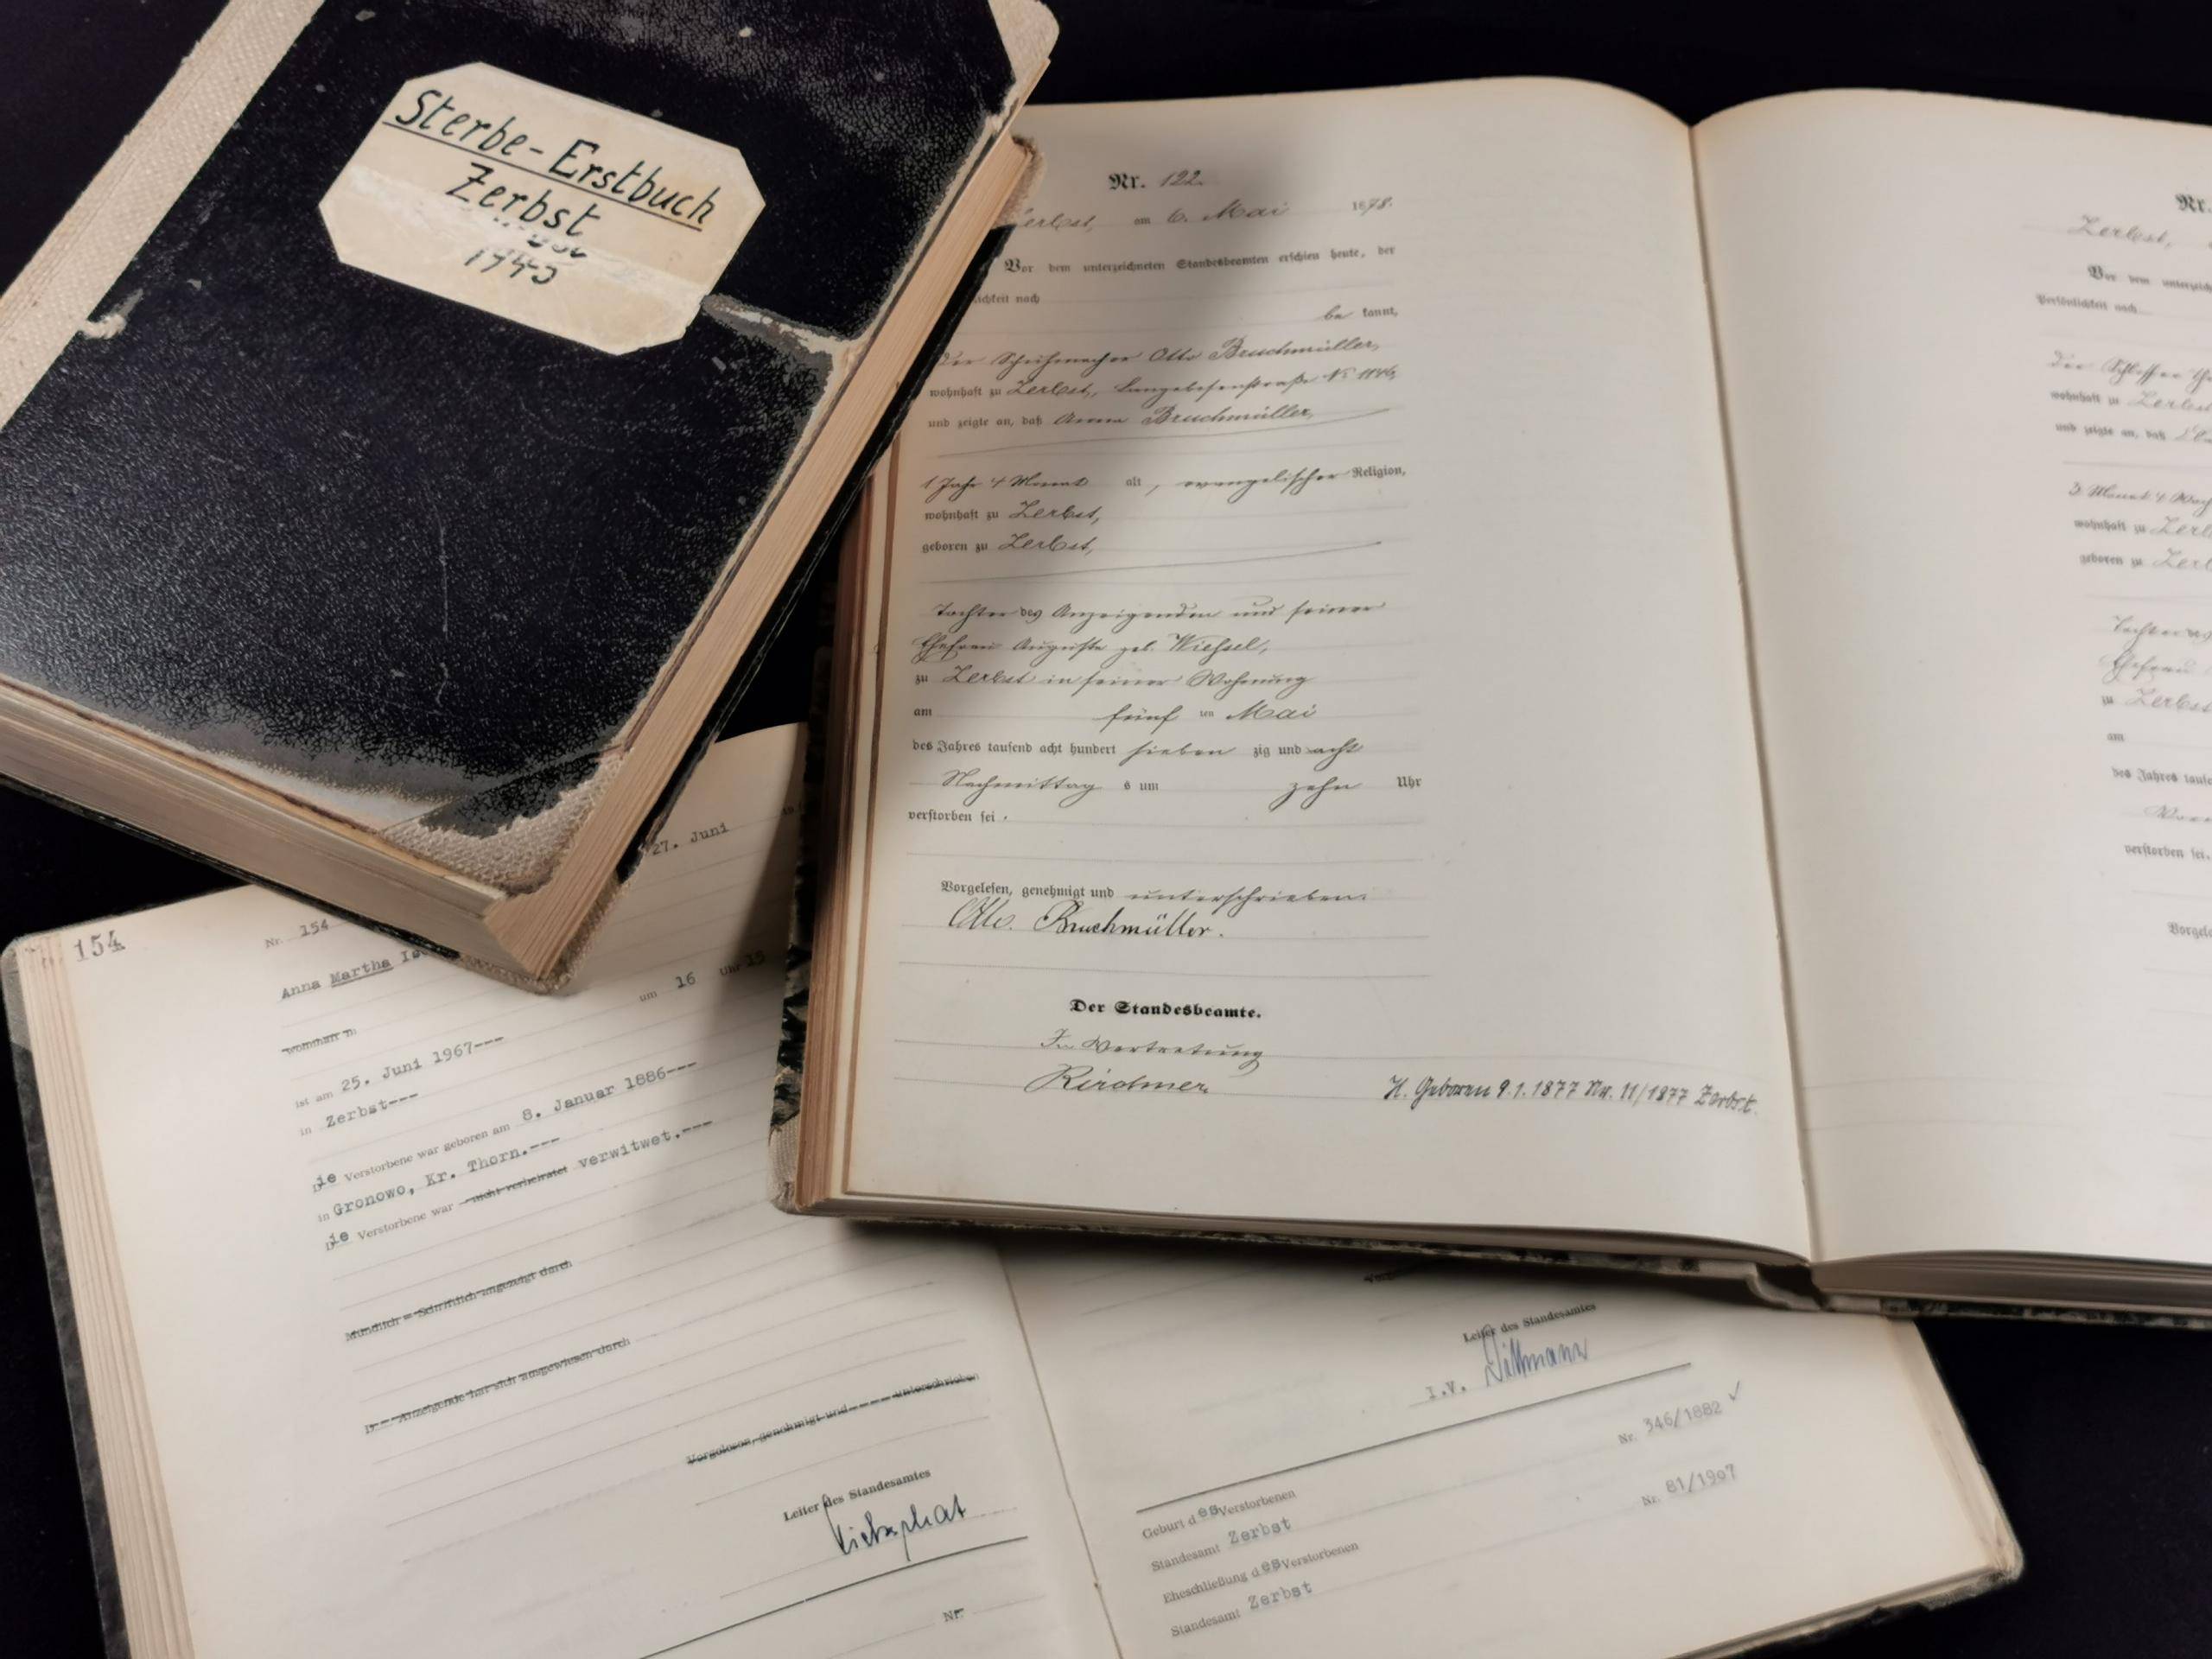 Sterbe-Erstbuch
Zerbst
1945
Nr. 122.
Zerbst, am 6. Mai 1878.
Vor dem unterzeichneten Standesbeamten erschien heute, der
be kannt,
der Schuhmacher Otto Bruchmüller,
wohnhaft zu Zerbst, Langebesenstraße
und zeigte an, daß Anna Bruchmüller,
1 Jahr 4 Monat alt, evangelischer Religion,
wohnhaft zu Zerbst,
geboren zu Zerbst,
Tochter des Anzeigenden und seiner
Ehefrau Auguste geb. Wiehsel,
zu Zerbst in seiner Wohnung
am fünf ten Mai
des Jahres tausend acht hundert sieben zig und acht
Nachmittag s um zehn Uhr
verstorben sei.
Vorgelesen, genehmigt und unterschrieben.
Otto Bruchmüller.
Der Standesbeamte.
In Vertretung
Kirchner.
H. Geboren 9.1.1877 Nr. 11/1877 Zerbst.
Nr.
Zerbst,
Vor dem
Persönlichkeit nach
der Schlosser
wohnhaft zu Zerbst
und zeigte an, daß
3 Monat 4
wohnhaft zu
geboren zu
Tochter
Ehefrau
zu Zerbst
am
des Jahres
verstorben sei.
154
Nr. 154
27. Juni
Anna Martha
um 16 Uhr 15
wohnhaft in
ist am 25. Juni 1967---
in Zerbst---
Die Verstorbene war geboren am 8. Januar 1886---
in Gronowo, Kr. Thorn.---
Die Verstorbene war nicht verheiratet verwitwet.---
Mündlich - Schriftlich angezeigt durch
D--- Anzeigende hat sich ausgewiesen durch
Vorgelesen, genehmigt und ---- unterschrieben
Leiter des Standesamtes
Nr.
Leiter des Standesamtes
I.V. Dittmann
Nr. 346/1882 ✓
Geburt des Verstorbenen
Standesamt Zerbst
Nr. 81/1907
Eheschließung des Verstorbenen
Standesamt Zerbst